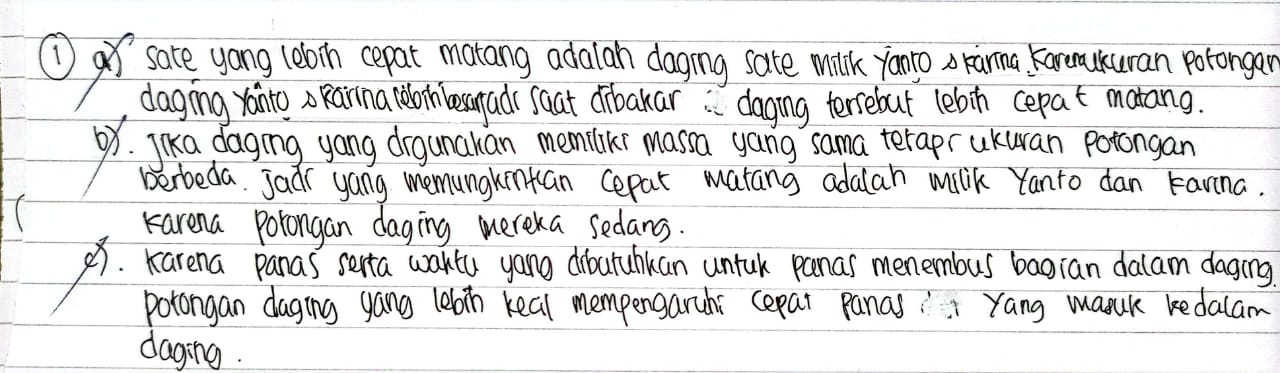 ① a) sate yang lebih cepat matang adalah daging sate milik Yanto & Karina. Karena ukuran potongan
daging Yanto & Karina lebih besar jadi saat dibakar daging tersebut lebih cepat matang.
b). Jika daging yang digunakan memiliki massa yang sama tetapi ukuran potongan
berbeda. Jadi yang memungkinkan cepat matang adalah milik Yanto dan Karina.
Karena potongan daging mereka sedang.
c). Karena panas serta waktu yang dibutuhkan untuk panas menembus bagian dalam daging.
potongan daging yang lebih kecil mempengaruhi cepat panas yang masuk kedalam
daging.